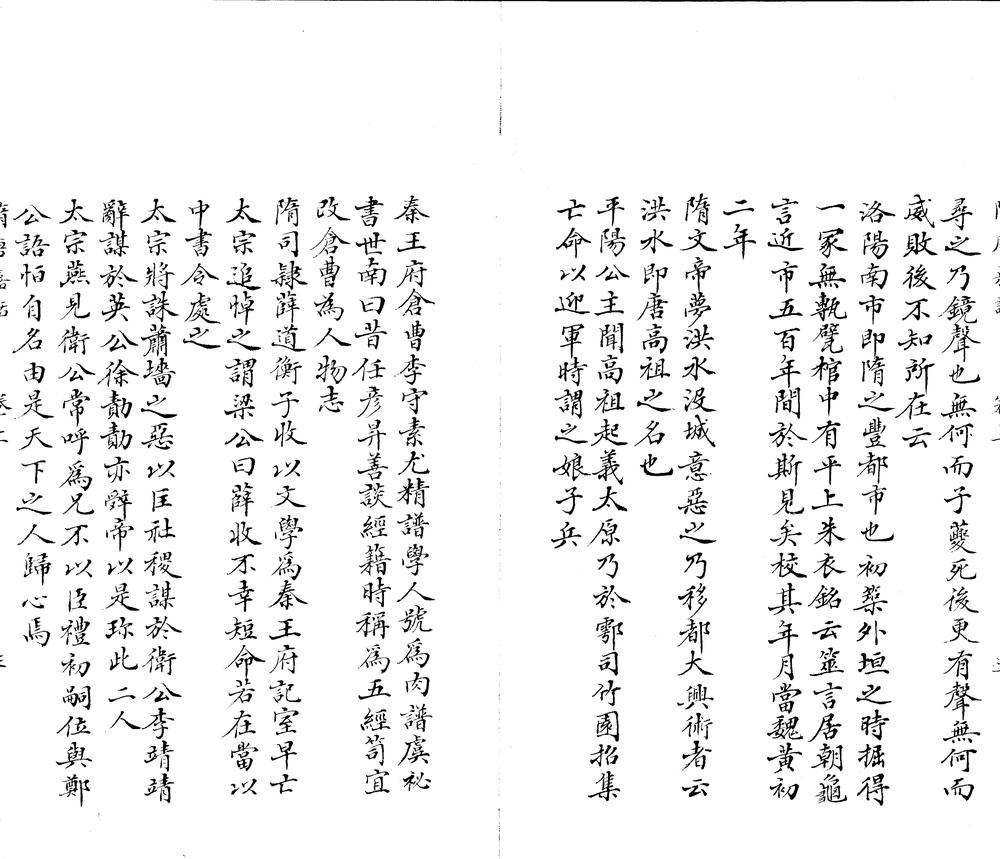 尋之乃鏡聲也無何而子夔死後更有聲無何而
威敗後不知所在云
洛陽南市即隋之豐都市也初築外垣之時掘得
一冢無甎甓棺中有平上朱衣銘云筮言居朝龜
言近市五百年間於斯見矣校其年月當魏黃初
二年
隋文帝夢洪水沒城意惡之乃移都大興術者云
洪水即唐高祖之名也
平陽公主聞高祖起義太原乃於鄠司竹園招集
亡命以迎軍時謂之娘子兵
秦王府倉曹李守素尤精譜學人號為肉譜虞祕
書世南曰昔任彥昇善談經籍時稱為五經笥宜
改倉曹為人物志
隋司隸薛道衡子收以文學為秦王府記室早亡
太宗追悼之謂梁公曰薛收不幸短命若在當以
中書令處之
太宗將誅蕭墻之惡以匡社稷謀於衛公李靖靖
辭謀於英公徐勣勣亦辭帝以是珍此二人
太宗燕見衛公常呼為兄不以臣禮初嗣位與鄭
公語怕自名由是天下之人歸心焉